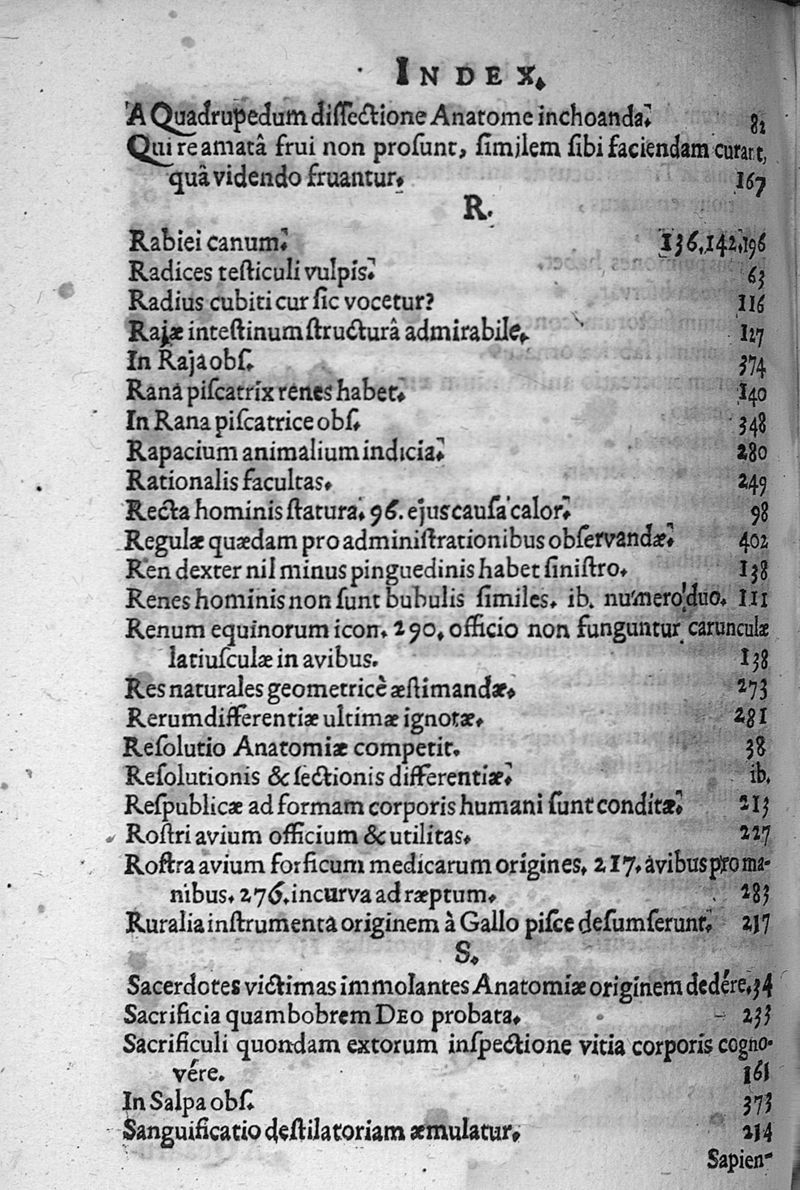 INDEX.
A Quadrupedum diſſectione Anatome inchoanda. 82
Qui re amatâ frui non proſunt, ſimilem ſibi faciendam curant,
quâ videndo fruantur. 167
R.
Rabiei canum. 136.142.196
Radices teſticuli vulpis. 63
Radius cubiti cur ſic vocetur? 116
Rajæ inteſtinum ſtructurâ admirabile. 127
In Raja obſ. 374
Rana piſcatrix renes habet. 140
In Rana piſcatrice obſ. 348
Rapacium animalium indicia. 280
Rationalis facultas. 249
Recta hominis ſtatura. 96. ejus cauſa calor. 98
Regulæ quædam pro adminiſtrationibus obſervandæ. 402
Ren dexter nil minus pinguedinis habet ſiniſtro. 138
Renes hominis non ſunt bubulis ſimiles. ib. numero duo. 111
Renum equinorum icon. 290. officio non funguntur carunculæ
latiuſculæ in avibus. 138
Res naturales geometricè æſtimandæ. 273
Rerum differentiæ ultimæ ignotæ. 281
Reſolutio Anatomiæ competit. 38
Reſolutionis & ſectionis differentiæ. ib.
Reſpublicæ ad formam corporis humani ſunt conditæ. 213
Roſtri avium officium & utilitas. 227
Roſtra avium forficum medicarum origines. 217. avibus pro ma-
nibus. 276. incurva ad ræptum. 283
Ruralia inſtrumenta originem à Gallo piſce deſumſerunt. 217
S.
Sacerdotes victimas immolantes Anatomiæ originem dedére. 34
Sacrificia quambobrem DEO probata. 233
Sacrificuli quondam extorum inſpectione vitia corporis cogno-
vére. 161
In Salpa obſ. 373
Sanguificatio deſtilatoriam æmulatur. 214
Sapien-